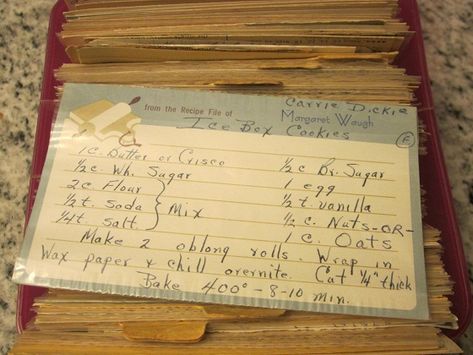 from the Recipe File of Carrie Dickie
Margaret Waugh
Ice Box Cookies E
1 c. Butter or Crisco
½ c. Wh. Sugar ½ c. Br. Sugar
2 c. Flour 1 egg
½ t. Soda } Mix ½ t. vanilla
¼ t. Salt ½ c. Nuts-OR-
1 c. Oats
Make 2 oblong rolls. Wrap in
Wax paper & chill overnite. Cut ¼" thick
Bake 400° - 8-10 min.